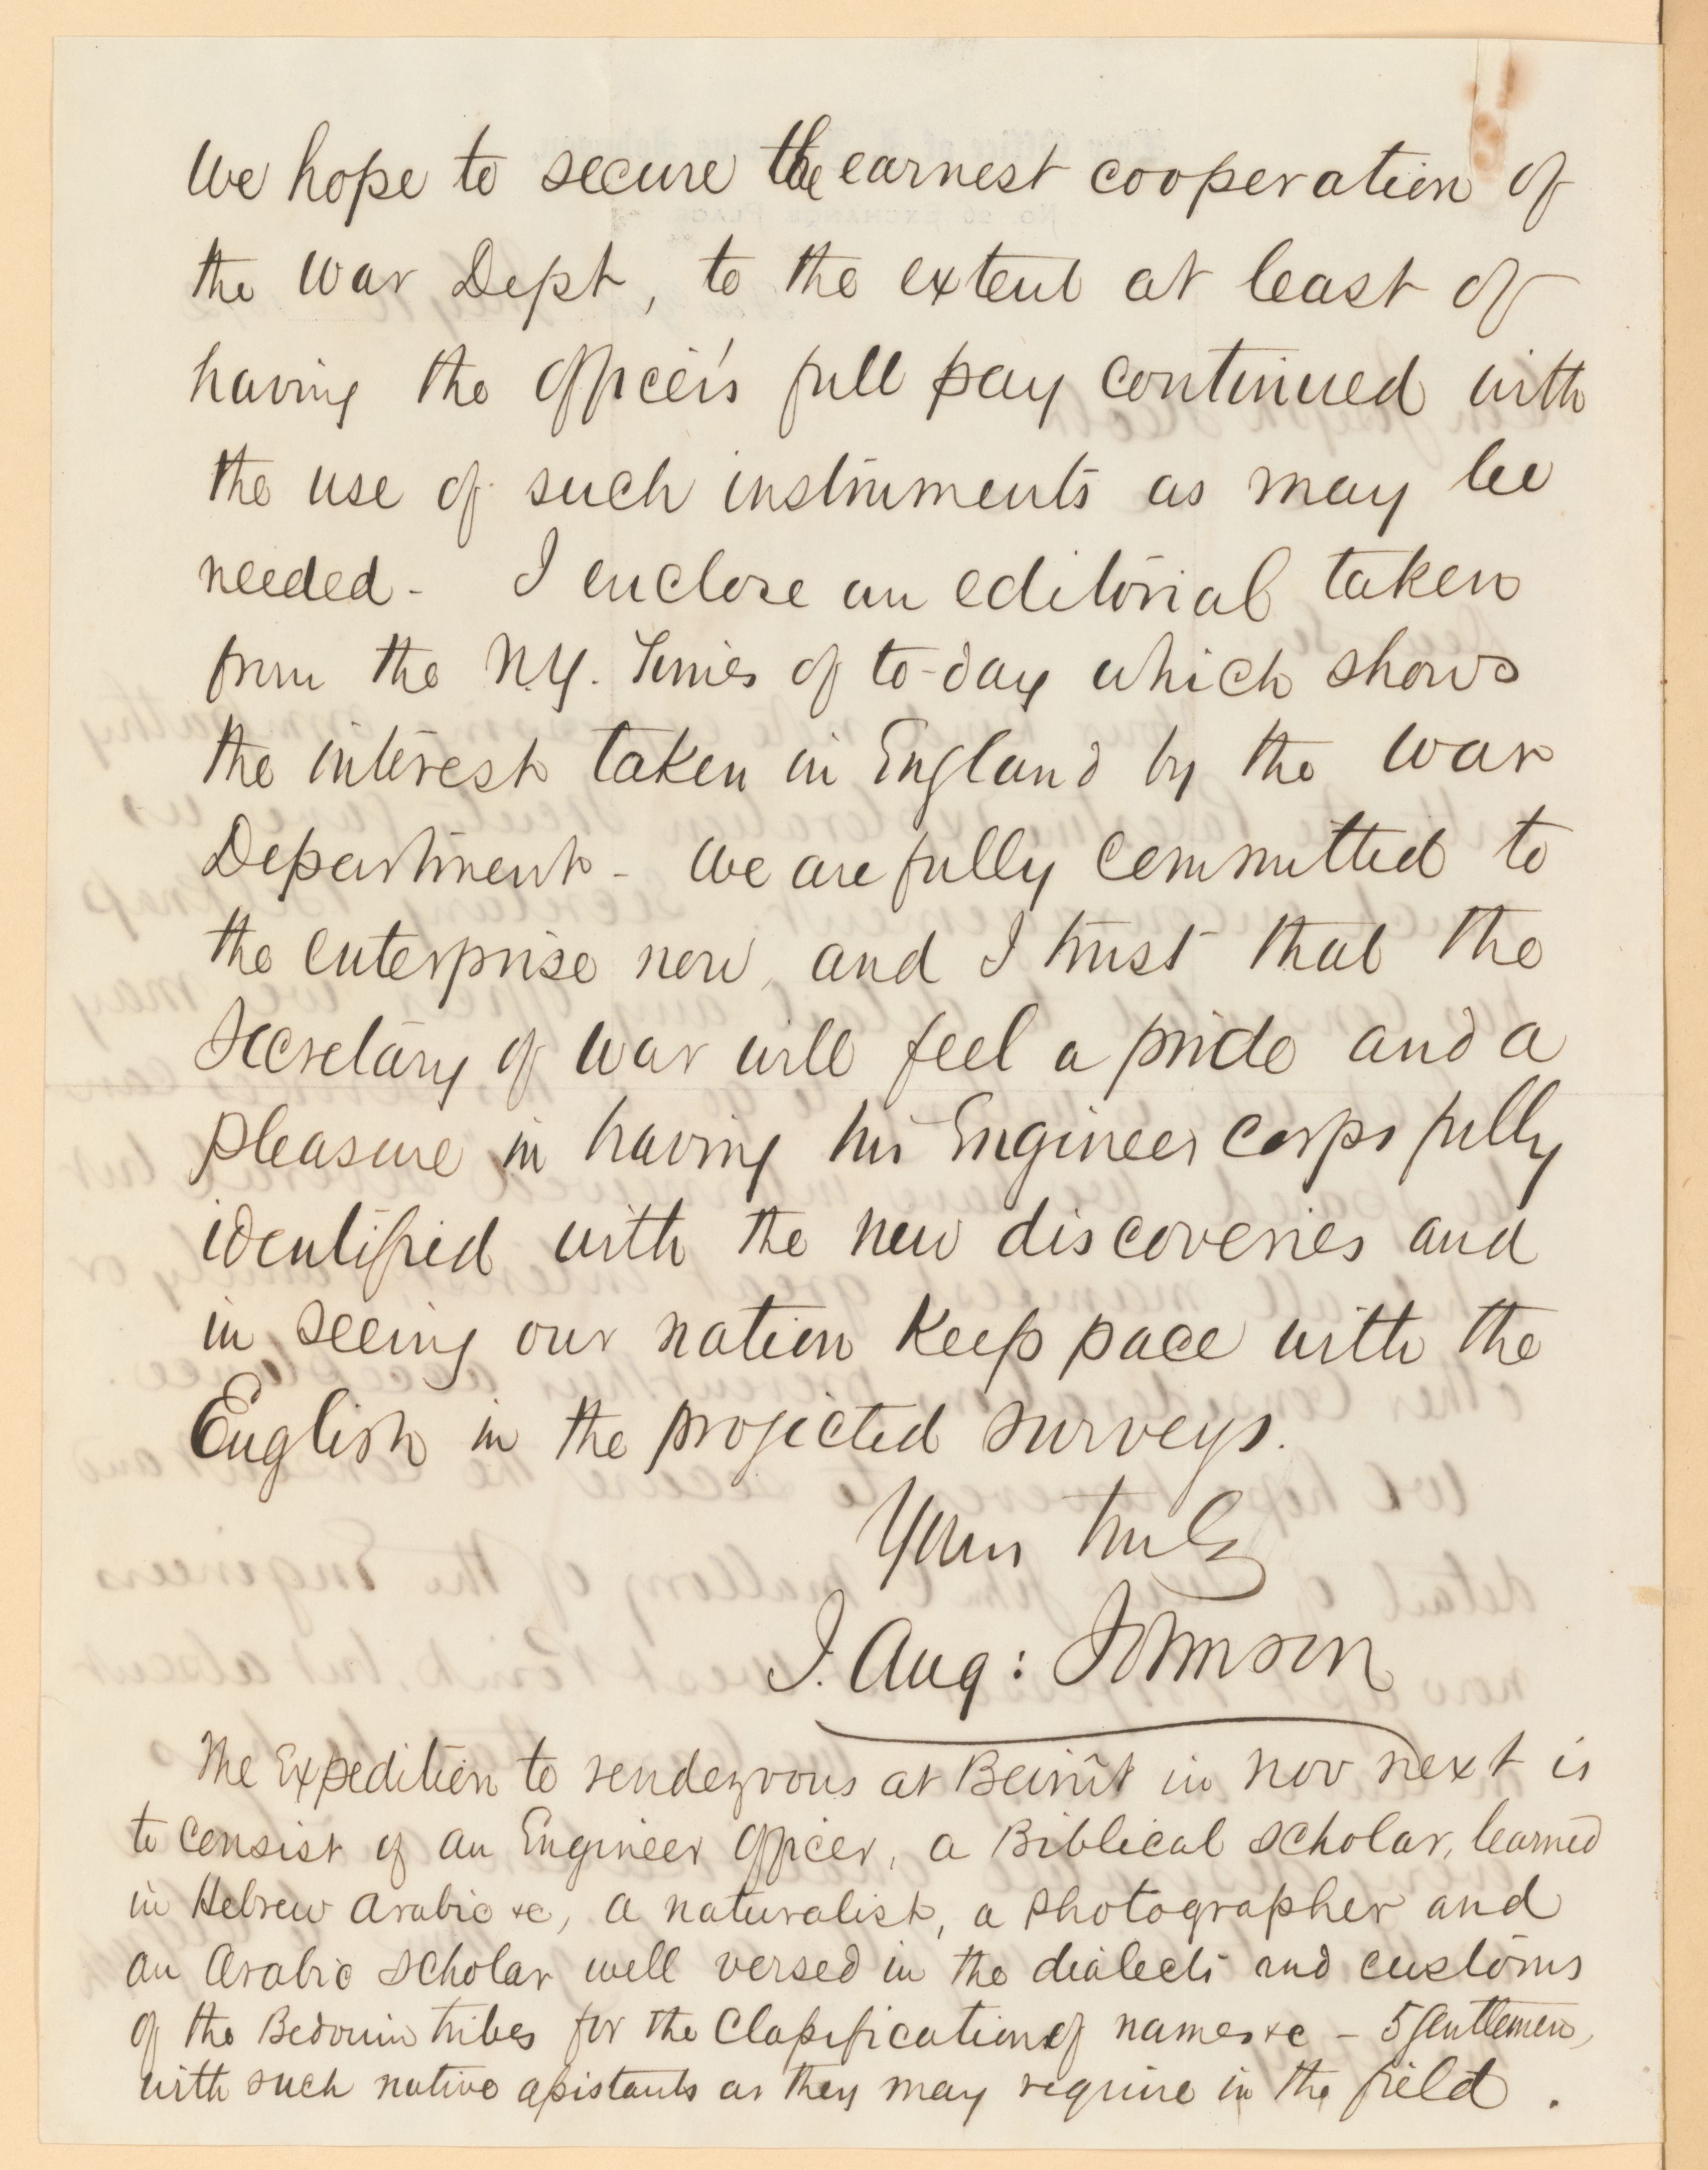 We hope to secure the earnest cooperation of
the War Dept, to the extent at least of
having the officer's full pay continued with
the use of such instruments as may be
needed - I enclose an editorial taken
from the N.Y. Times of to-day which shows
the interest taken in England by the War
Department - We are fully committed to
the enterprise now, and I trust that the
Secretary of War will feel a pride and a
pleasure in having his Engineer corps fully
identified with the new discoveries and
in seeing our nation keep pace with the
English in the projected surveys.
Yours truly
J. Aug: Johnson
The Expedition to rendezvous at Beirût in Nov next is
to consist of an Engineer officer, a Biblical scholar, learned
in Hebrew Arabic &c, a naturalist, a photographer and
an Arabic scholar well versed in the dialects and customs
of the Bedouin tribes for the Classification of names &c - 5 gentlemen,
with such native assistants as they may require in the field.